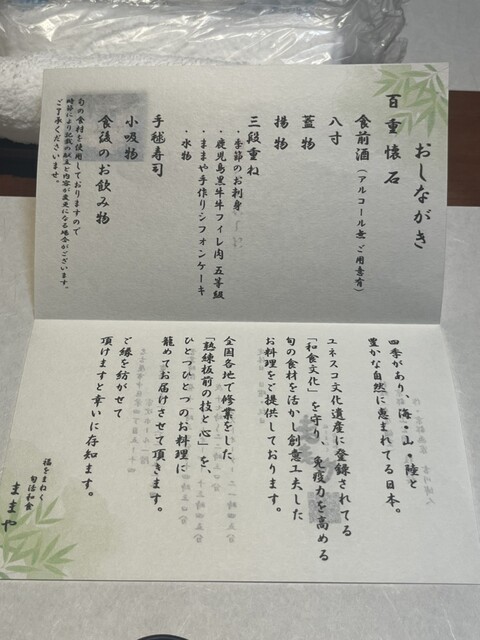 おしながき
百重懐石
食前酒(アルコール無ご用意有)
八寸
蓋物
揚物
三段重ね
・季節のお刺身
・鹿児島黒牛牛フィレ肉 五等級
・ままや手作りシフォンケーキ
・水物
手毬寿司
小吸物
食後のお飲み物
旬の食材を使用しておりますので
時節により記載の献立と内容が変更になる場合がございます。
ご了承くださいませ。
四季があり、海・山・陸と
豊かな自然に恵まれてる日本。
ユネスコ文化遺産に登録されてる
「和食文化」を守り、免疫力を高める
旬の食材を活かし創意工夫した
お料理をご提供しております。
全国各地で修業をした
「熟練板前の技と心」を、
ひとつひとつのお料理に
籠めてお届けさせて頂きます。
ご縁を紡がせて
頂けますと幸いに存知ます。
福をまねく
旬活和食
ままや